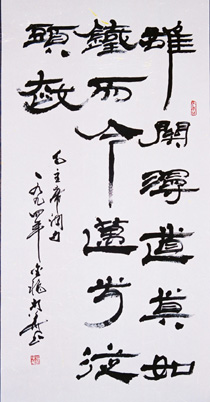 雄關漫道真如
鐵而今邁步從
頭越
毛主席词句
一九九四年